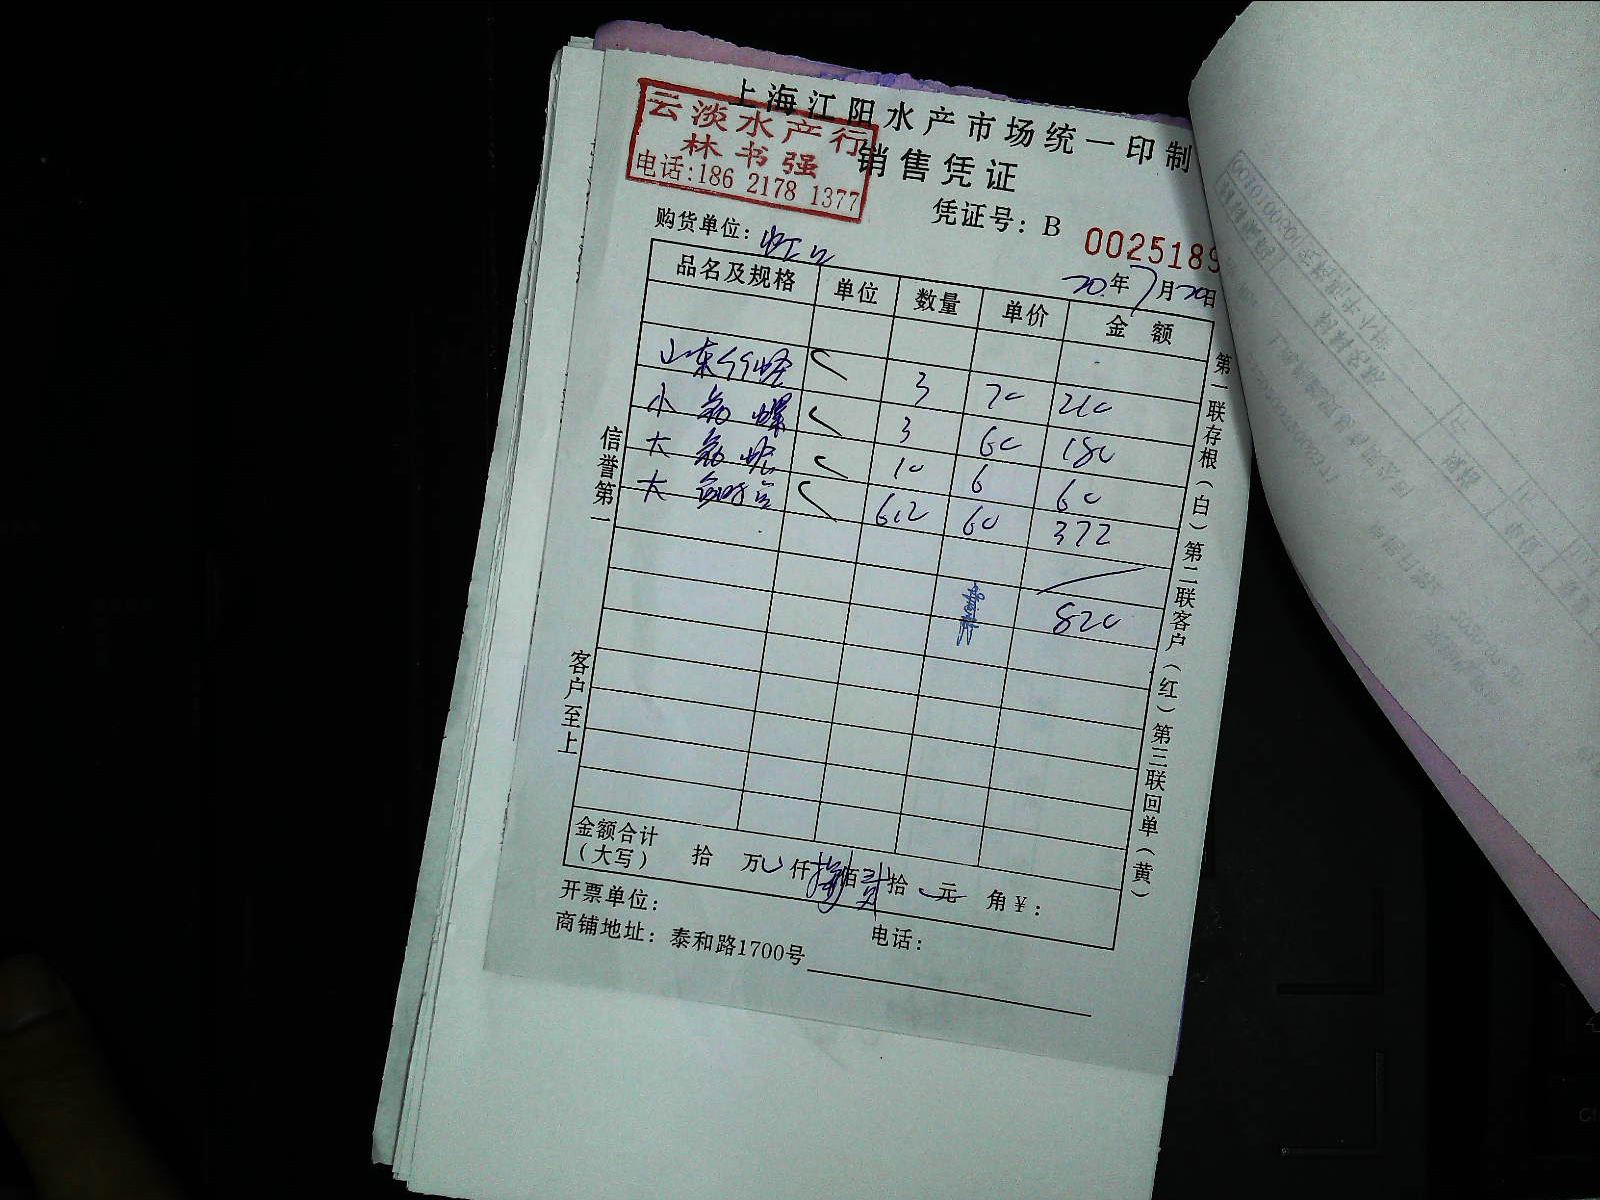 上海江阳水产市场统一印制
销售凭证
云淡水产行
林书强
电话:186 2178 1377
凭证号: B 0025189
购货单位: 虹口
20年7月20日
品名及规格 单位 数量 单价 金额
山东竹蛏 3 70 210
小 螺 3 60 180
大 10 6 60
大 6.2 60 372
820
金额合计(大写) 拾 万 仟 捌佰贰拾 元 角¥:
开票单位: 电话:
商铺地址: 泰和路1700号
信誉第一
客户至上
第一联存根(白)第二联客户(红)第三联回单(黄)